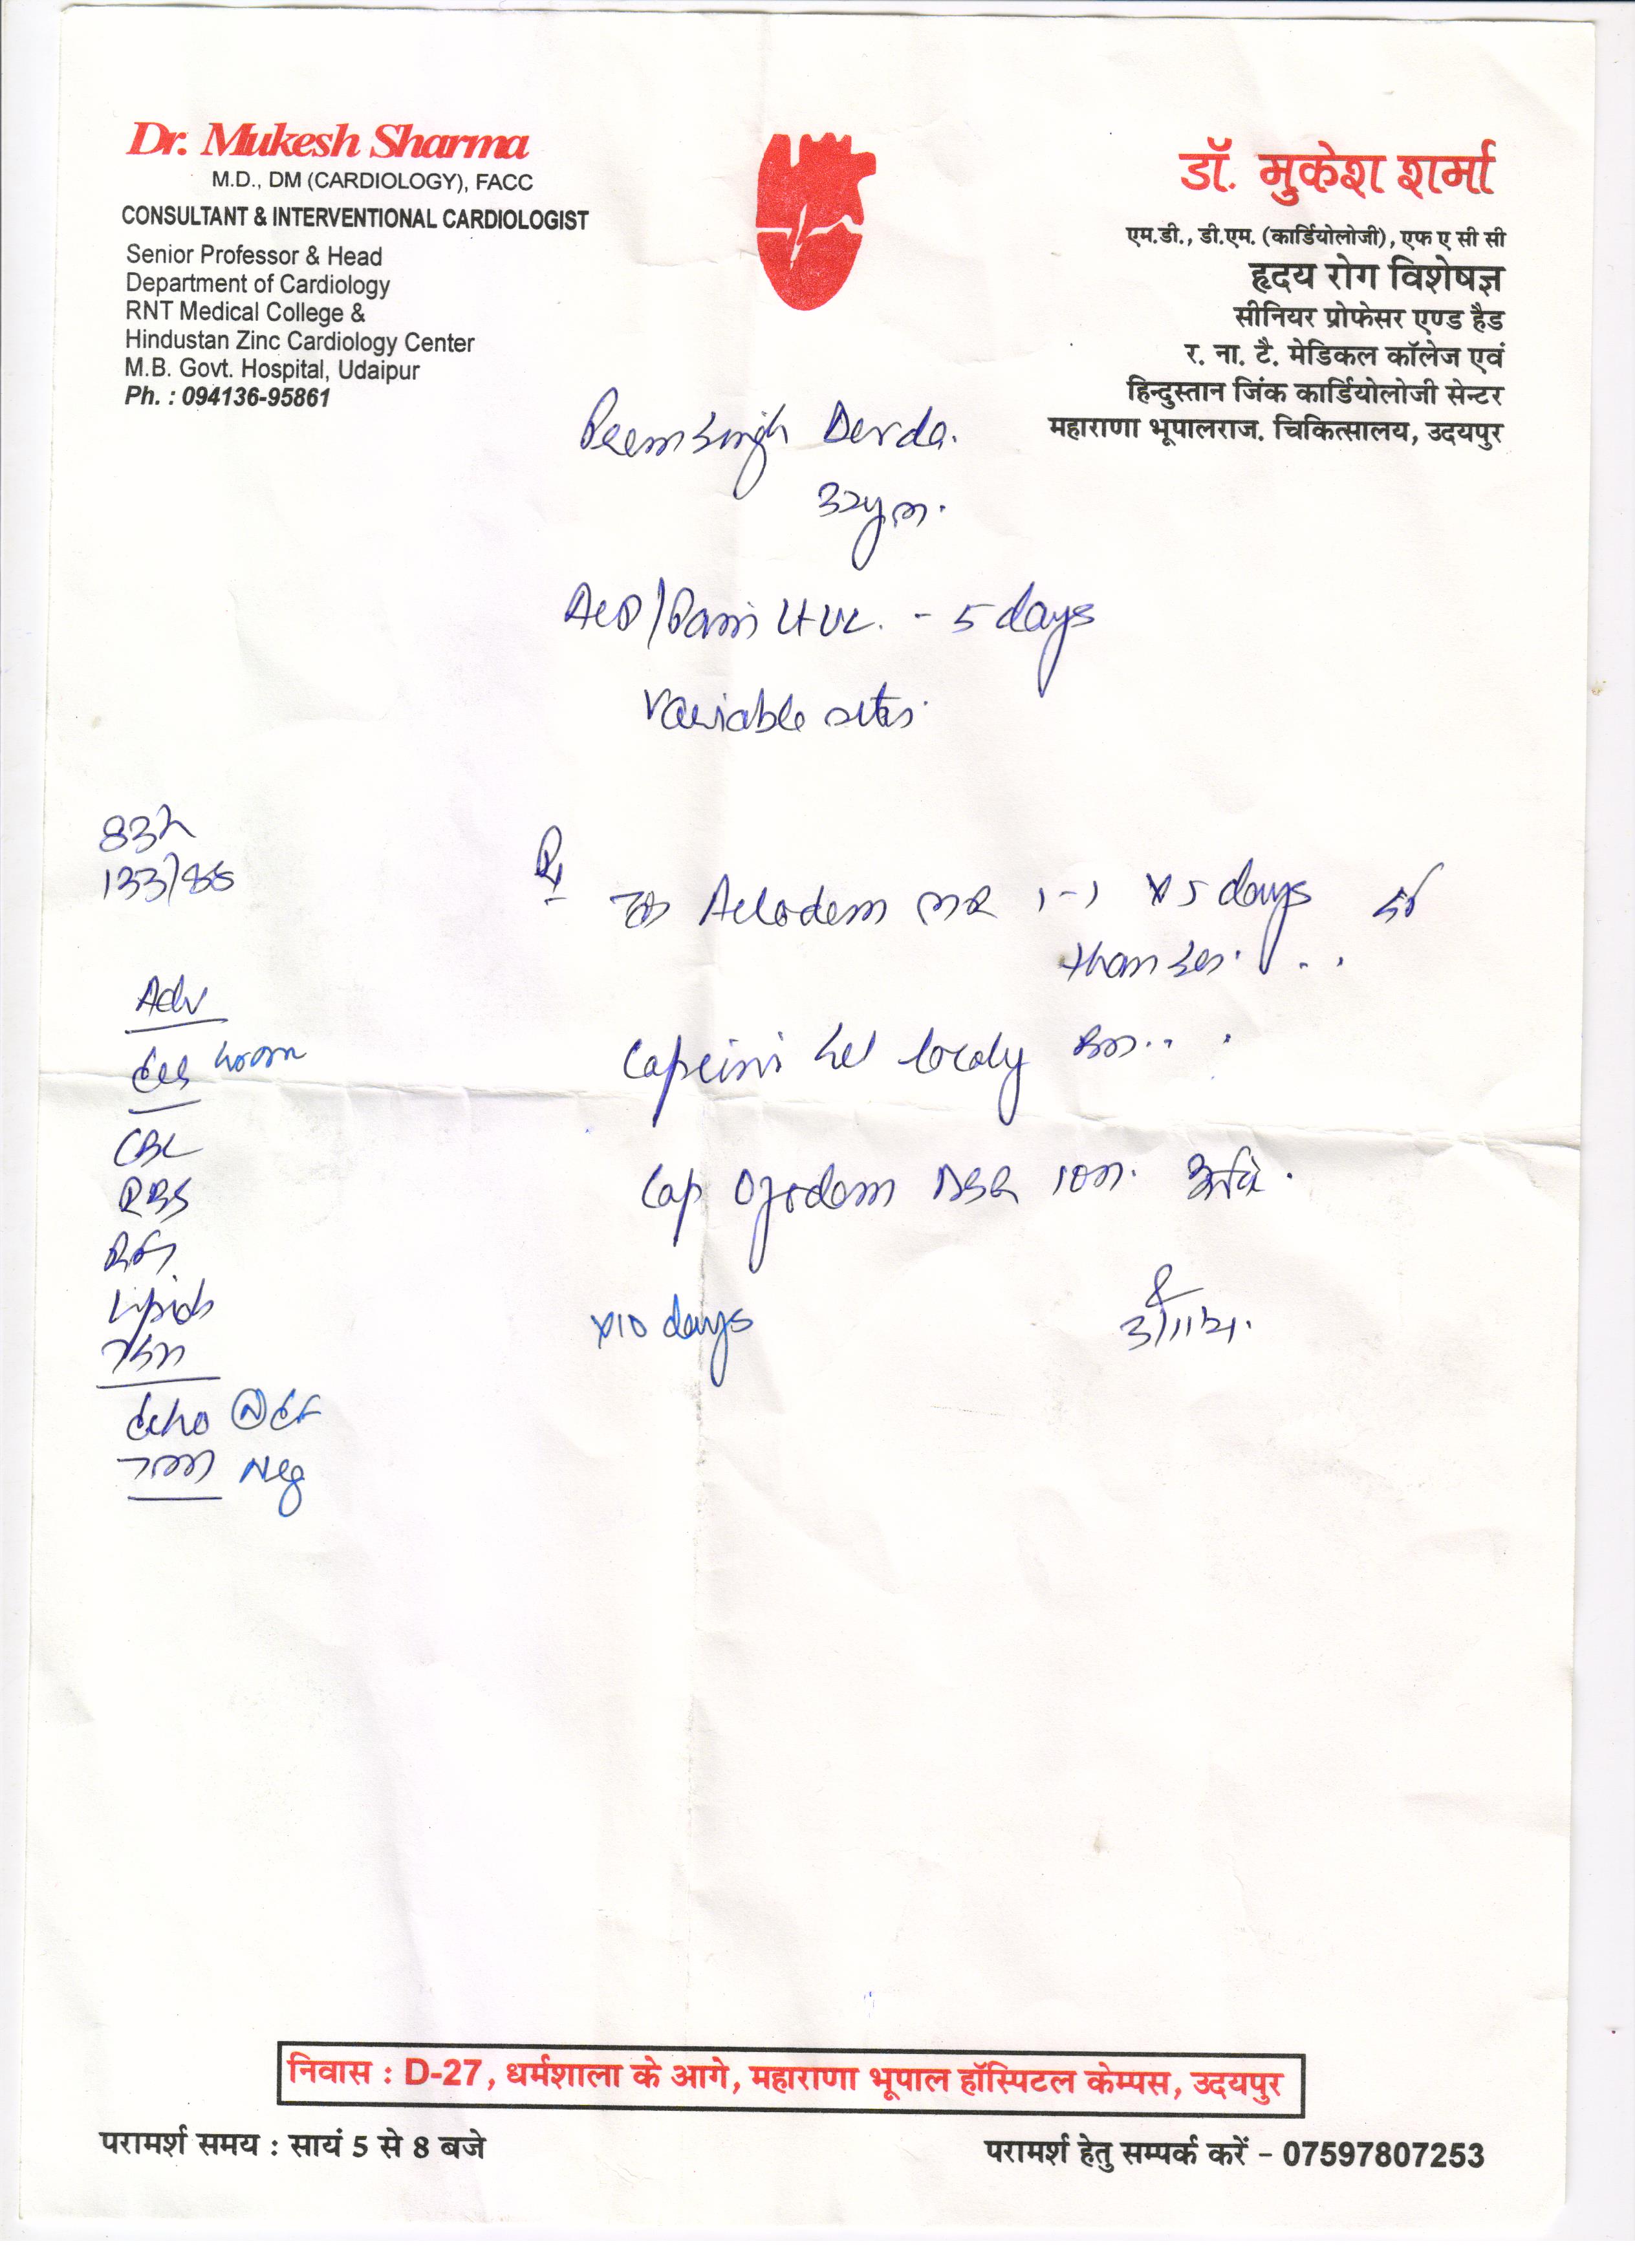 Dr. Mukesh Sharma
M.D., DM (CARDIOLOGY), FACC
CONSULTANT & INTERVENTIONAL CARDIOLOGIST
Senior Professor & Head
Department of Cardiology
RNT Medical College &
Hindustan Zinc Cardiology Center
M.B. Govt. Hospital, Udaipur
Ph. : 094136-95861
डॉ. मुकेश शर्मा
एम.डी., डी.एम. (कार्डियोलोजी), एफ ए सी सी
हृदय रोग विशेषज्ञ
सीनियर प्रोफेसर एण्ड हैड
र. ना. टै. मेडिकल कॉलेज एवं
हिन्दुस्तान जिंक कार्डियोलोजी सेन्टर
महाराणा भूपालराज. चिकित्सालय, उदयपुर
32y m.
- 5 days
Variable sites.
133/88
Adv
CBC
RBS
RFT
Lipids
TSH
Echo (N) EF
TMT Neg
Rx
MR 1-1 x 5 days
locally
Cap DSR
x10 days
निवास : D-27, धर्मशाला के आगे, महाराणा भूपाल हॉस्पिटल केम्पस, उदयपुर
परामर्श समय : सायं 5 से 8 बजे
परामर्श हेतु सम्पर्क करें - 07597807253